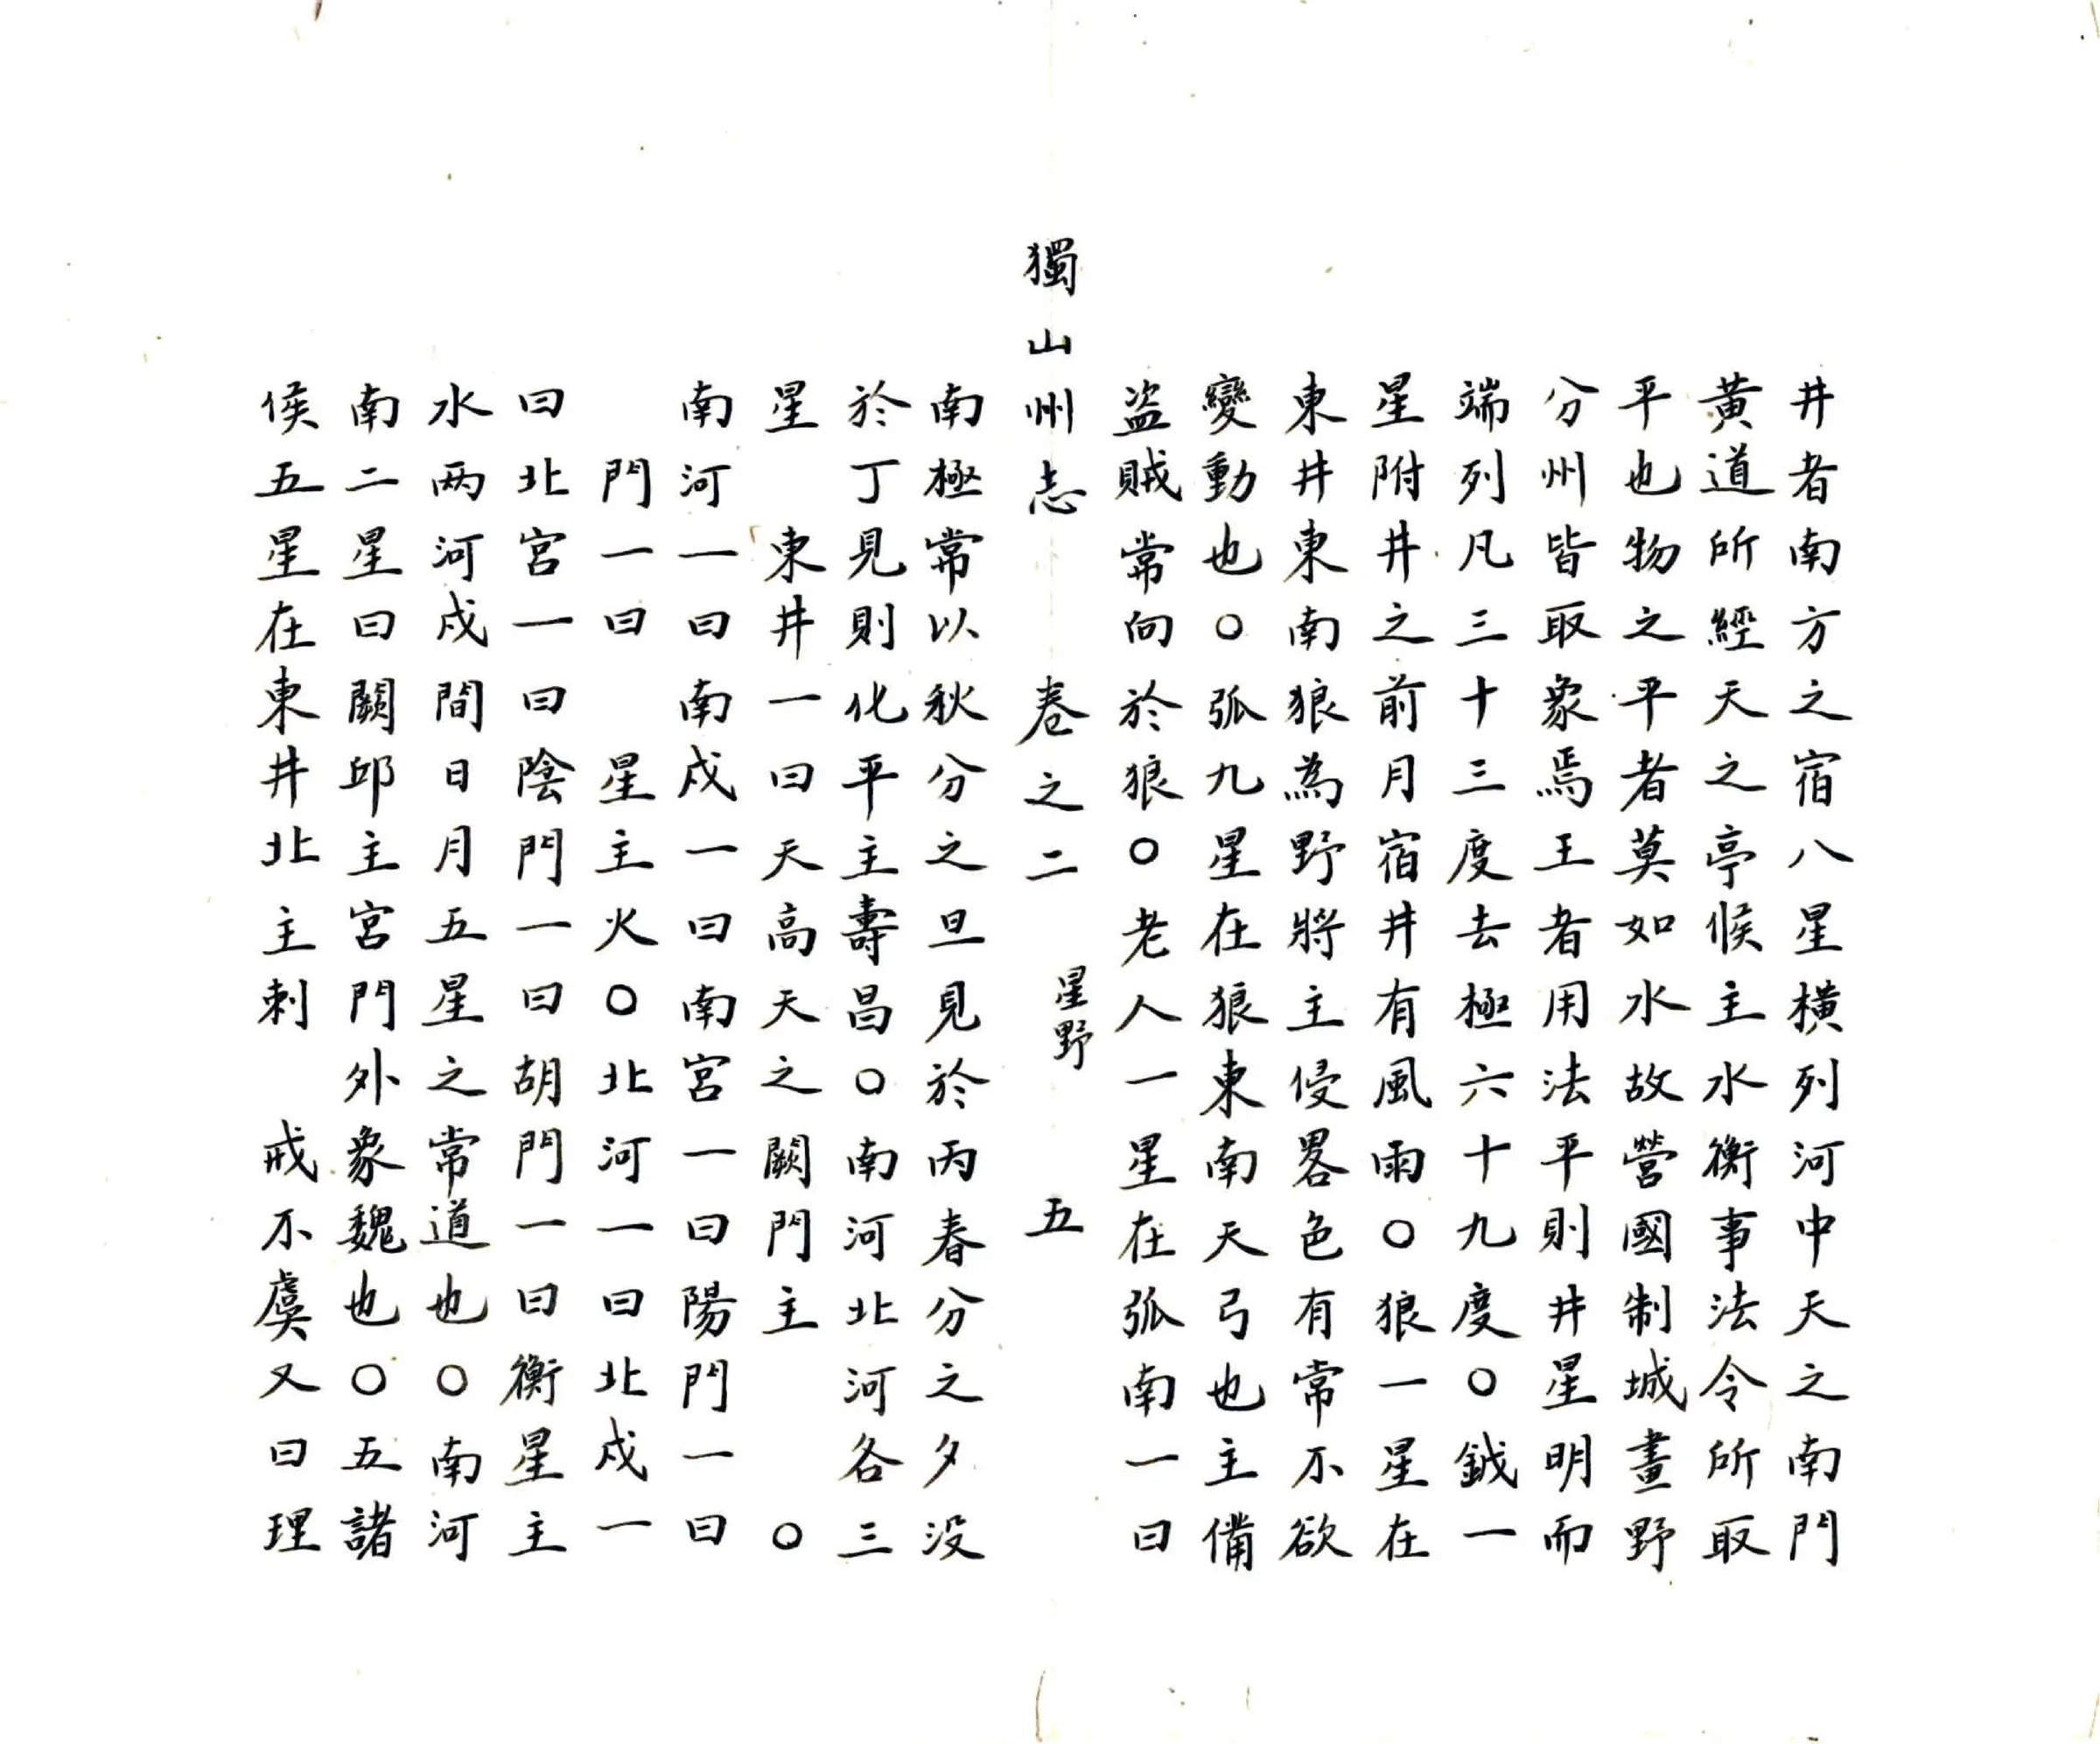 井者南方之宿八星橫列河中天之南門
黃道所經天之亭候主水衡事法令所取
平也物之平者莫如水故營國制城畫野
分州皆取象焉王者用法平則井星明而
端列凡三十三度去極六十九度〇鉞一
星附井之前月宿井有風雨〇狼一星在
東井東南狼為野將主侵畧色有常不欲
變動也〇弧九星在狼東南天弓也主備
盜賊常向於狼〇老人一星在弧南一曰
獨山州志 卷之二 星野 五
南極常以秋分之旦見於丙春分之夕没
於丁見則化平主壽昌〇南河北河各三
星 東井一曰天高天之闕門主 〇
南河一曰南戍一曰南宮一曰陽門一曰
門一曰 星主火〇北河一曰北戍一
曰北宮一曰陰門一曰胡門一曰衡星主
水两河戍間日月五星之常道也〇南河
南二星曰闕邱主宮門外象魏也〇五諸
侯五星在東井北主刺 戒不虞又曰理